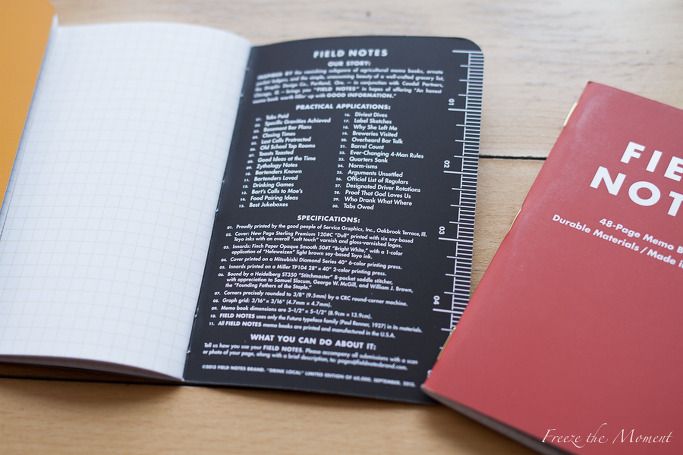 FIELD NOTES
OUR STORY:
INSPIRED BY the vanishing subgenre of agricultural memo books, ornate
pocket ledgers, and the simple, unassuming beauty of a well-crafted grocery list,
the Draplin Design Co., Portland, Ore. — in conjunction with Coudal Partners,
Chicago, Ill. — brings you "FIELD NOTES" in hopes of offering "An honest
memo book worth fillin' up with GOOD INFORMATION."
PRACTICAL APPLICATIONS:
01. Tabs Paid
02. Specific Gravities Achieved
03. Basement Bar Plans
04. Closing Times
05. Last Calls Protracted
06. Old School Tap Rooms
07. Toasts Toasted
08. Good Ideas at the Time
09. Zythology Notes
10. Bartenders Known
11. Bartenders Loved
12. Drinking Games
13. Bart's Calls to Moe's
14. Food Pairing Ideas
15. Best Jukeboxes
16. Diviest Dives
17. Label Sketches
18. Why She Left Me
19. Breweries Visited
20. Overheard Bar Talk
21. Barrel Count
22. Ever-Changing 4-Man Rules
23. Quarters Sank
24. Norm-isms
25. Arguments Unsettled
26. Official List of Regulars
27. Designated Driver Rotations
28. Proof That God Loves Us
29. Who Drank What Where
30. Tabs Owed
SPECIFICATIONS:
01. Proudly printed by the good people of Service Graphics, Inc., Oakbrook Terrace, Ill.
02. Cover: New Page Sterling Premium 120#C "Dull" printed with six soy-based
Toyo inks with an overall "soft touch" varnish and gloss-varnished logos.
03. Innards: Finch Paper Opaque Smooth 50#T "Bright White," with a 1-color
application of "Hefeweizen" light brown soy-based Toyo ink.
04. Cover printed on a Mitsubishi Diamond Series 40" 6-color printing press.
05. Innards printed on a Miller TP104 28" x 40" 2-color printing press.
06. Bound by a Heidelberg ST350 "Stitchmaster" 8-pocket saddle stitcher,
with appreciation to Samuel Slocum, George W. McGill, and William J. Brown,
the "Founding Fathers of the Staple."
07. Corners precisely rounded to 3/8" (9.5mm) by a CRC round-corner machine.
08. Graph grid: 3/16" x 3/16" (4.7mm x 4.7mm).
09. Memo book dimensions are 3-1/2" x 5-1/2" (8.9cm x 13.9cm).
10. FIELD NOTES uses only the Futura typeface family (Paul Renner, 1927) in its materials.
11. All FIELD NOTES memo books are printed and manufactured in the U.S.A.
WHAT YOU CAN DO ABOUT IT:
Tell us how you use your FIELD NOTES. Please accompany all admissions with a scan
or photo of your page, along with a brief description, to: pages@fieldnotesbrand.com.
©2013 FIELD NOTES BRAND. "DRINK LOCAL" LIMITED EDITION OF 60,000, SEPTEMBER, 2013.
FIE
NOT
48-Page Memo B
Durable Materials / Made i
Freeze the Moment